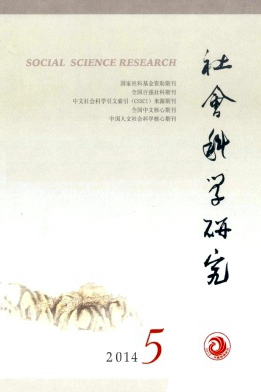 SOCIAL SCIENCE RESEARCH
国家社科基金资助期刊
全国百强社科期刊
中文社会科学引文索引（CSSCI）来源期刊
全国中文核心期刊
中国人文社会科学核心期刊
社會科学研究
2014 5